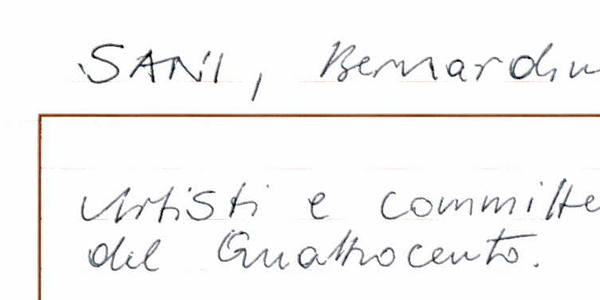 SANI, Bernardin
Artisti e committe
del Quattrocento.